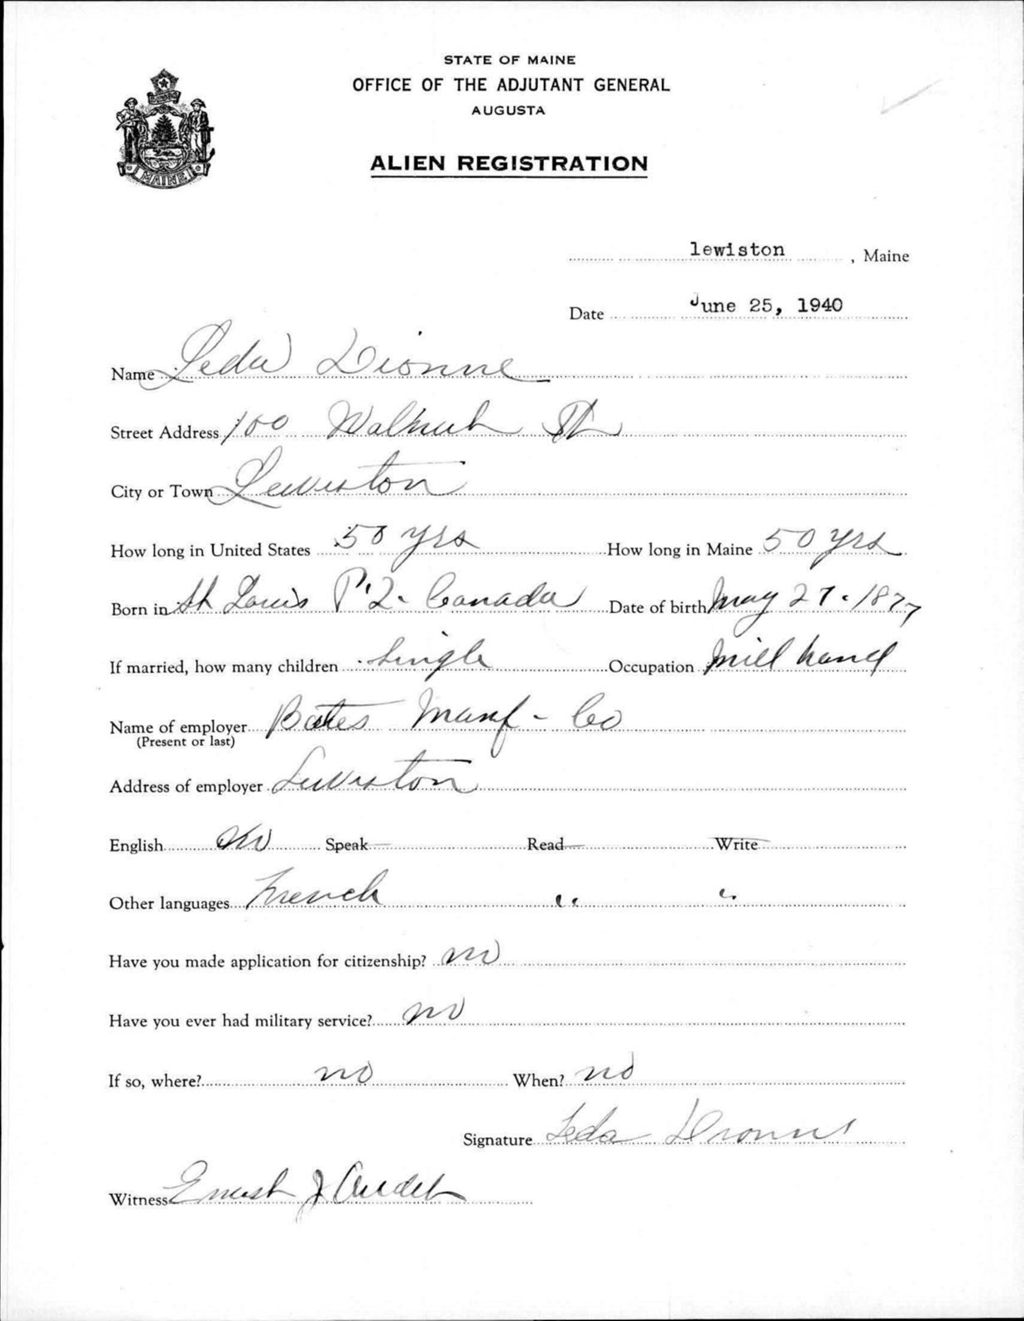 STATE OF MAINE
OFFICE OF THE ADJUTANT GENERAL
AUGUSTA
MAINE
ALIEN REGISTRATION
lewiston, Maine
Date June 25, 1940
Name Leda Dionne
Street Address 100 Walnut St
City or Town Lewiston
How long in United States 50 yrs How long in Maine 50 yrs
Born in St Louis P.Q. Canada Date of birth May 27 - 1877
If married, how many children Single Occupation Mill hand
Name of employer Bates Manf - Co
(Present or last)
Address of employer Lewiston
English No Speak Read Write
Other languages French " "
Have you made application for citizenship? no
Have you ever had military service? no
If so, where? no When? no
Signature Leda Dionne
Witness Ernest J Audet